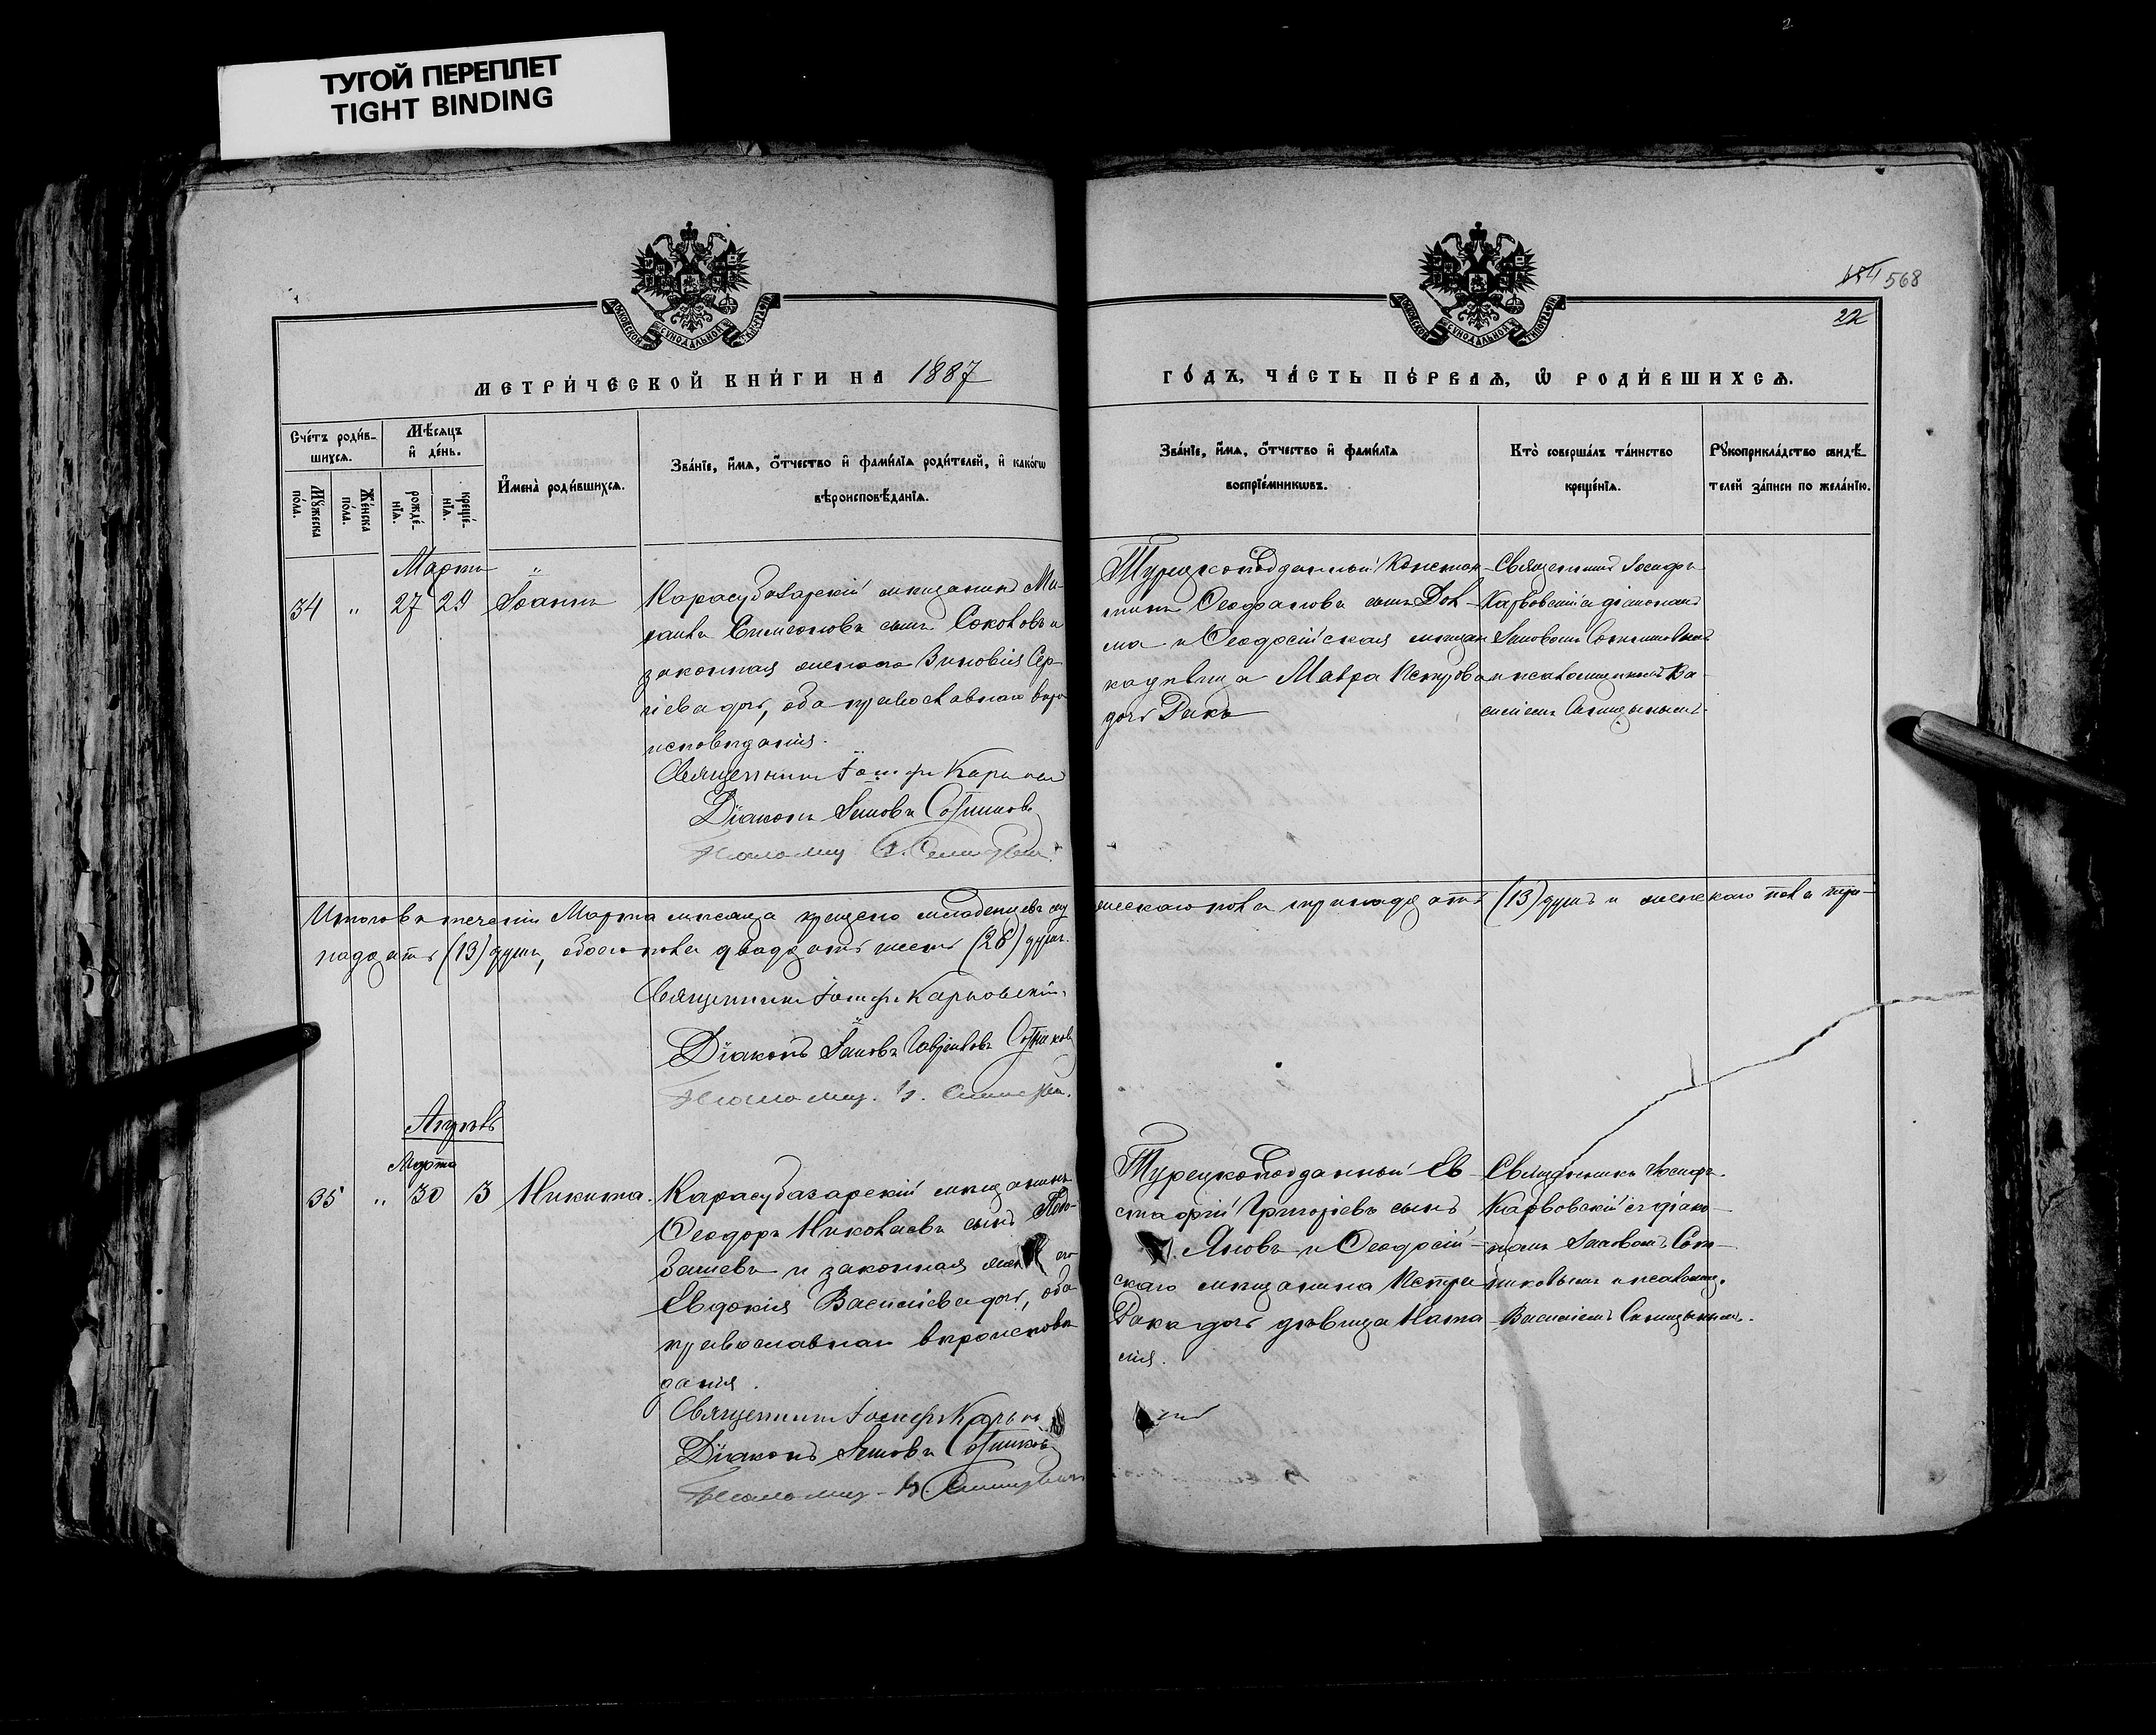 ТУГОЙ ПЕРЕПЛЕТ
TIGHT BINDING
568
22
МЕТРИ́ЧЕСКОЙ КНИ́ГИ НА 1887
ГО́ДЪ, ЧА́СТЬ ПЕ́РВАѦ, Ѡ҆ РОДИ́ВШИХСѦ.
Сче́тъ роди́в-
шихсѧ.
Мѣ́сѧцъ
и҆ де́нь.
Мꙋ́жеска
пола.
Же́нска
по́ла.
рожде́-
нїѧ.
креще́-
нїѧ.
И҆мена̀ роди́вшихсѧ.
Зва́нїе, и҆́мѧ, о҆́тчество и҆ фами́лїѧ роди́телей, и҆ како́гѡ
вѣроисповѣ́данїѧ.
Зва́нїе, и҆́мѧ, о҆́тчество и҆ фами́лїѧ
воспрїе́мникѡвъ.
Кто̀ соверша́лъ та́инство
креще́нїѧ.
Рꙋкоприкла́дство свидѣ́-
телей за́писи по жела́нїю.
Мартъ
34 " 27 29 Іоаннъ
Карасубазарскій мѣщанинъ Ми-
хаилъ Симеоновъ сынъ Соколовъ и
законная жена его Зиновія Сер-
гіева дочь, оба православнаго вѣро
исповѣданія.
Священникъ Іосифъ
Діаконъ Іаковъ Сотниковъ
Псаломщ.
Турецкоподданный Констан-
тинъ Ѳеофановъ сынъ
ма и Ѳеодосійская мѣщан
ка дѣвица Мавра Петрова
дочь Рака
Священникъ Іосифъ
Карвовскій съ діакономъ
Іаковомъ Сотниковымъ
и псаломщикомъ Ва-
силіемъ
Итого въ теченіи Марта мѣсяца крещено младенцевъ му
жескаго пола тринадцать (13) душъ и женскаго пола три-
надцать (13) душъ, обоего пола двадцать шесть (26) душъ.
Священникъ Іосифъ Карвовскій
Діаконъ Іаковъ Гавриловъ Сотниковъ
Псаломщ. В.
Апрѣль
Марта
35 " 30 3 Никита.
Карасубазарскій мѣщанинъ
Ѳеодоръ Николаевъ сынъ
и законная его
Евдокія Василіева дочь, оба
православнаго вѣроисповѣ
данія.
Священникъ Іосифъ
Діаконъ Іаковъ Сотниковъ
Псаломщ. В.
Турецкоподданный Ев-
стафій Григоріевъ сынъ
Яковъ и Ѳеодосій-
скаго мѣщанина Петра
Рака дочь дѣвица Ната
лія.
Священникъ Іосифъ
Карвовскій съ діако-
номъ Іаковомъ Сот-
никовымъ и псаломщ.
Василіемъ